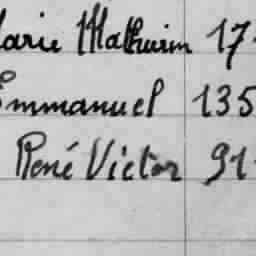 Marie Mathurin 17
Emmanuel 135
René Victor 91